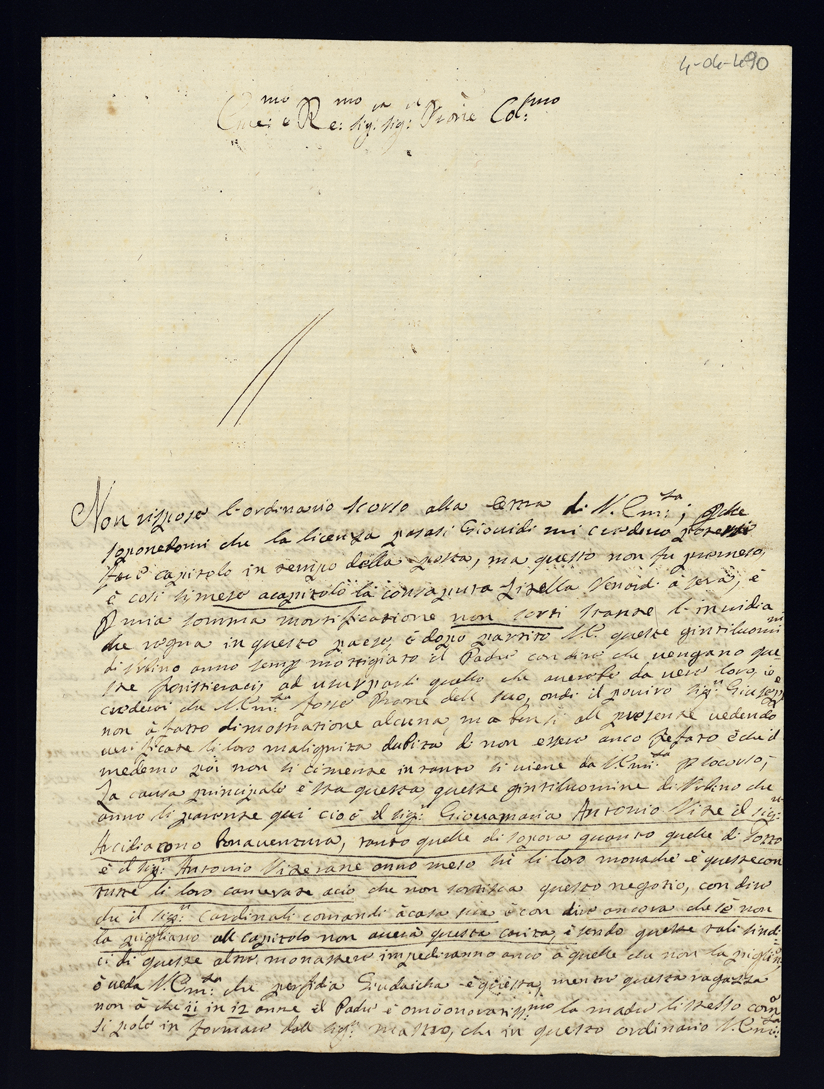 4-04-490
Eme: mo e Re: mo sig: sig: Prone Col: mo
Non rispose l'ordinario scorso alla lettra di V. Em: za; p che
soponedomi che la licenza pasasi Giovidi mi credevo
fare capitolo in tempo della posta, ma questo non fu permeso,
è cosi si mese acapitolo la consaputa Zitella Venoidi à sera; è
p mia somma mortificatione non sorti stante l'invidia
che regna in questo paese, è dopo partito M. queste gintiluomi ni
di Urbino anno semp motegiato il Padre con dire che vengano que
ste foristieracij ad usurparli quello che averebe da vere loro, io è
credevi che V. Em: za fose Prone dell suo, ondi il povero sig: re Giusepp
non à fatto dimostratione alcuna, ma bensi all presente vedendo
verificate li loro malignita dubita di non essere anco
medemo poi non si cimente intanto li viene da V. Em: za p locorso;
La causa principale è sta questa, queste gintiluomine di Urbino che
anno li parente qui cioè il sig: r Giovamaria Antonio Vite il sig: r
Arcidiacono Bonaventura, tanto quelle di sopora quanto quelle di sotto
è il sig: r Antonio Viterane anno meso sù li loro monache è queste con
tutte li loro camerate aciò che non sortisca questo negotio, con dire
che il sig: r Cardinali comandi àcasa sua è con dire ancora che sè non
la pigliano all capitolo non averà questa carita, è sendo queste tali sindi=
ci di queste altre monastere impediranno anco à quelle che non la piglin
ò veda V. Em: za che perfidia Giudaicha è questa, mentre questa ragazza
non à che 11 in 12 anne il Padre è omo onoratiss: mo la madre listesso come
si pole in formare dall sig: r mastro, che in questo ordinario V. Em: za